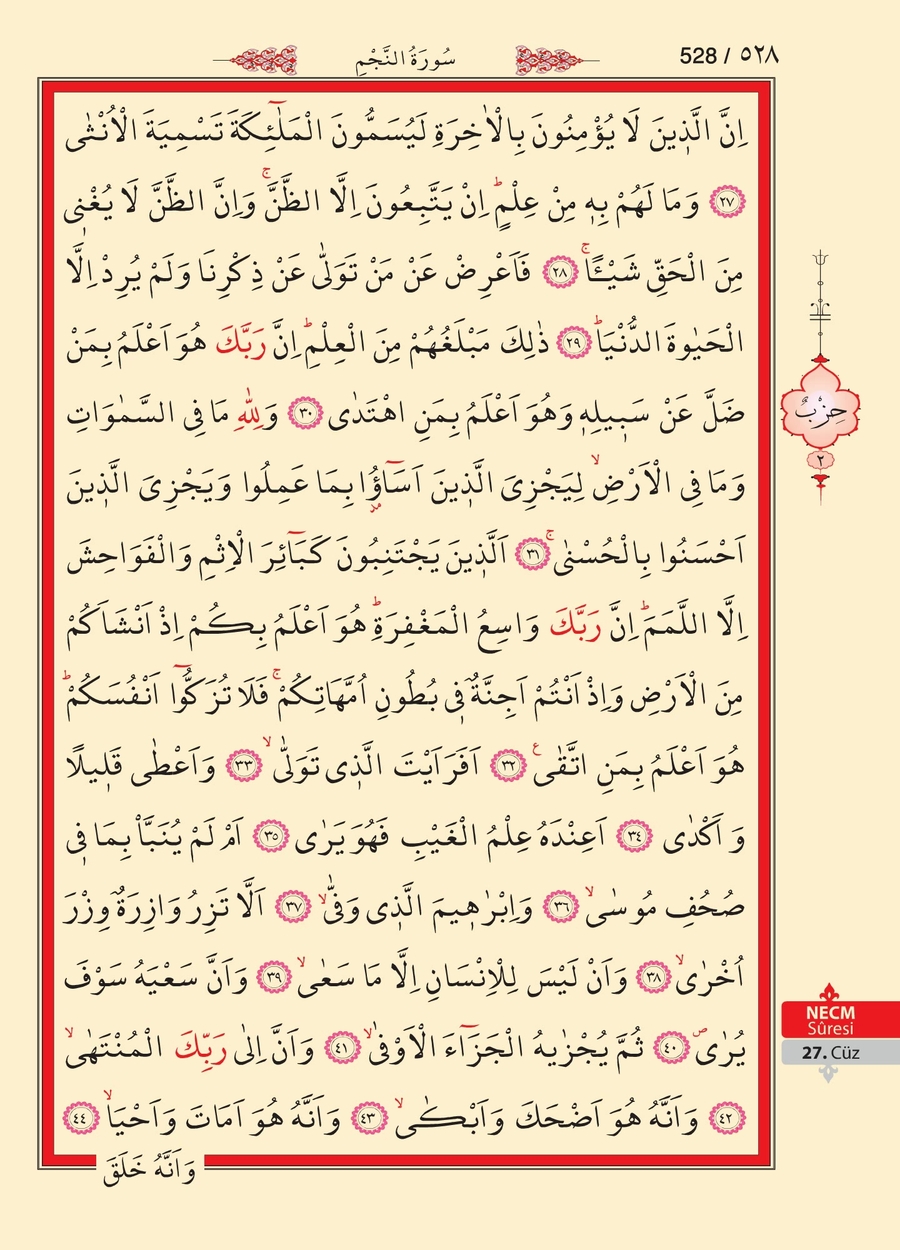 سُورَةُ النَّجْمِ
528 / ٥٢٨
اِنَّ الَّذ۪ينَ لَا يُؤْمِنُونَ بِالْاٰخِرَةِ لَيُسَمُّونَ الْمَلٰٓئِكَةَ تَسْمِيَةَ الْاُنْثٰى
﴿٢٧﴾ وَمَا لَهُمْ بِه۪ مِنْ عِلْمٍۜ اِنْ يَتَّبِعُونَ اِلَّا الظَّنَّۚ وَاِنَّ الظَّنَّ لَا يُغْن۪ى
مِنَ الْحَقِّ شَيْـًٔاۚ ﴿٢٨﴾ فَاَعْرِضْ عَنْ مَنْ تَوَلّٰى عَنْ ذِكْرِنَا وَلَمْ يُرِدْ اِلَّا
الْحَيٰوةَ الدُّنْيَاۜ ﴿٢٩﴾ ذٰلِكَ مَبْلَغُهُمْ مِنَ الْعِلْمِۜ اِنَّ رَبَّكَ هُوَ اَعْلَمُ بِمَنْ
ضَلَّ عَنْ سَب۪يلِه۪ وَهُوَ اَعْلَمُ بِمَنِ اهْتَدٰى ﴿٣٠﴾ وَلِلّٰهِ مَا فِى السَّمٰوَاتِ
وَمَا فِى الْاَرْضِۙ لِيَجْزِىَ الَّذ۪ينَ اَسَٓاؤُ۫ا بِمَا عَمِلُوا وَيَجْزِىَ الَّذ۪ينَ
اَحْسَنُوا بِالْحُسْنٰىۚ ﴿٣١﴾ اَلَّذ۪ينَ يَجْتَنِبُونَ كَبَٓائِرَ الْاِثْمِ وَالْفَوَاحِشَ
اِلَّا اللَّمَمَۜ اِنَّ رَبَّكَ وَاسِعُ الْمَغْفِرَةِۜ هُوَ اَعْلَمُ بِكُمْ اِذْ اَنْشَاَكُمْ
مِنَ الْاَرْضِ وَاِذْ اَنْتُمْ اَجِنَّةٌ ف۪ى بُطُونِ اُمَّهَاتِكُمْۚ فَلَا تُزَكُّٓوا اَنْفُسَكُمْۜ
هُوَ اَعْلَمُ بِمَنِ اتَّقٰى۟ ﴿٣٢﴾ اَفَرَاَيْتَ الَّذ۪ى تَوَلّٰىۙ ﴿٣٣﴾ وَاَعْطٰى قَل۪يلًا
وَ اَكْدٰى ﴿٣٤﴾ اَعِنْدَهُ عِلْمُ الْغَيْبِ فَهُوَ يَرٰى ﴿٣٥﴾ اَمْ لَمْ يُنَبَّاْ بِمَا ف۪ى
صُحُفِ مُوسٰىۙ ﴿٣٦﴾ وَاِبْرٰه۪يمَ الَّذ۪ى وَفّٰىۙ ﴿٣٧﴾ اَلَّا تَزِرُ وَازِرَةٌ وِزْرَ
اُخْرٰىۙ ﴿٣٨﴾ وَاَنْ لَيْسَ لِلْاِنْسَانِ اِلَّا مَا سَعٰىۙ ﴿٣٩﴾ وَاَنَّ سَعْيَهُ سَوْفَ
يُرٰىۖ ﴿٤٠﴾ ثُمَّ يُجْزٰيهُ الْجَزَٓاءَ الْاَوْفٰىۙ ﴿٤١﴾ وَاَنَّ اِلٰى رَبِّكَ الْمُنْتَهٰىۙ
﴿٤٢﴾ وَاَنَّهُ هُوَ اَضْحَكَ وَاَبْكٰىۙ ﴿٤٣﴾ وَاَنَّهُ هُوَ اَمَاتَ وَاَحْيَاۙ ﴿٤٤﴾
وَاَنَّهُ خَلَقَ
حِزْبٌ
٢
NECM
Sûresi
27. Cüz